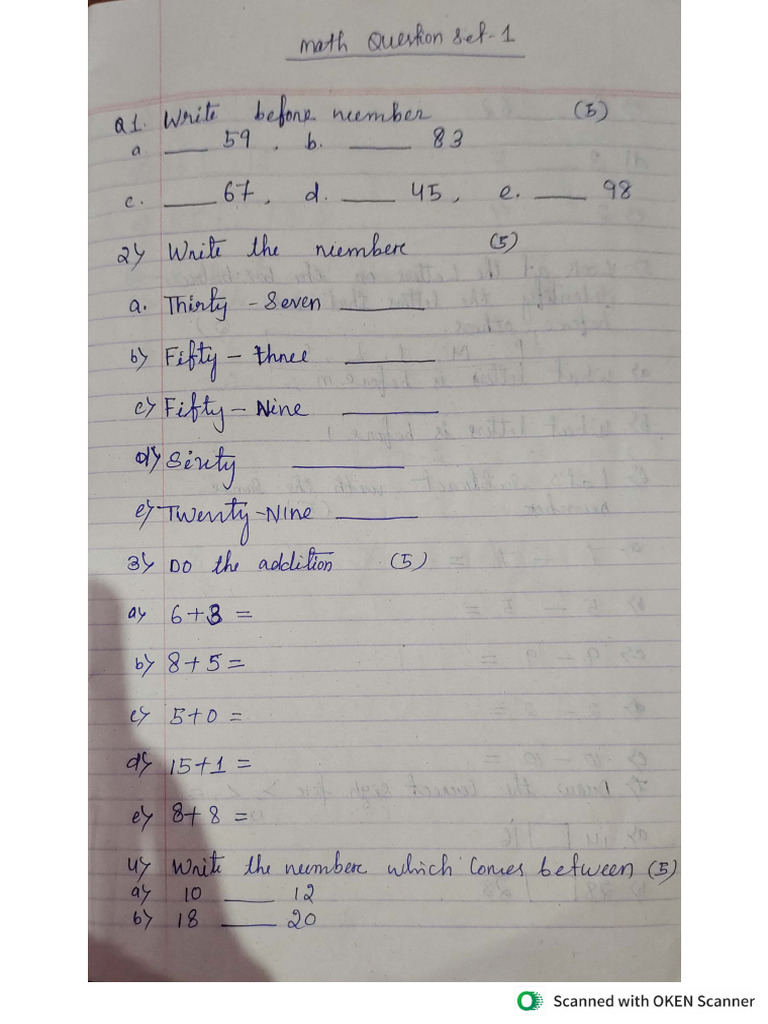 Math Question Set-1
Q1. Write before number (5)
a ___ 59 , b. ___ 83
c. ___ 67, d. ___ 45, e. ___ 98
2) Write the number (5)
a. Thirty - Seven ___
b) Fifty - three ___
c) Fifty - Nine ___
d) Sixty ___
e) Twenty - Nine ___
3) Do the addition (5)
a) 6+3 =
b) 8+5 =
c) 5+0 =
d) 15+1 =
e) 8+8 =
4) Write the number which comes between (5)
a) 10 ___ 12
b) 18 ___ 20
Scanned with OKEN Scanner